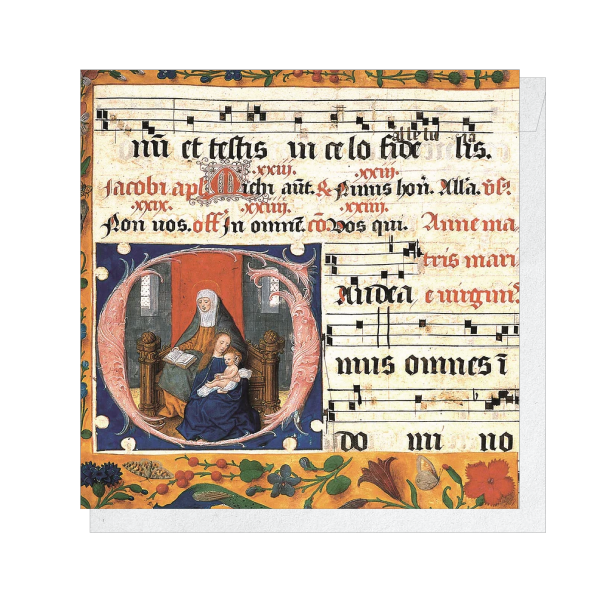 nū et testis in celo fide lis.
.xxiii. .xxiii.
Jacobi apl̄ Michi aūt. & Nimis hoñ. All'a. v̄s.
.xxix. .xxiiii. .xxiiii.
Non vos. off In omnē. cō Vos qui. Anne ma
tris mari
Audea e uirgini
mus omnes ī
do mi no